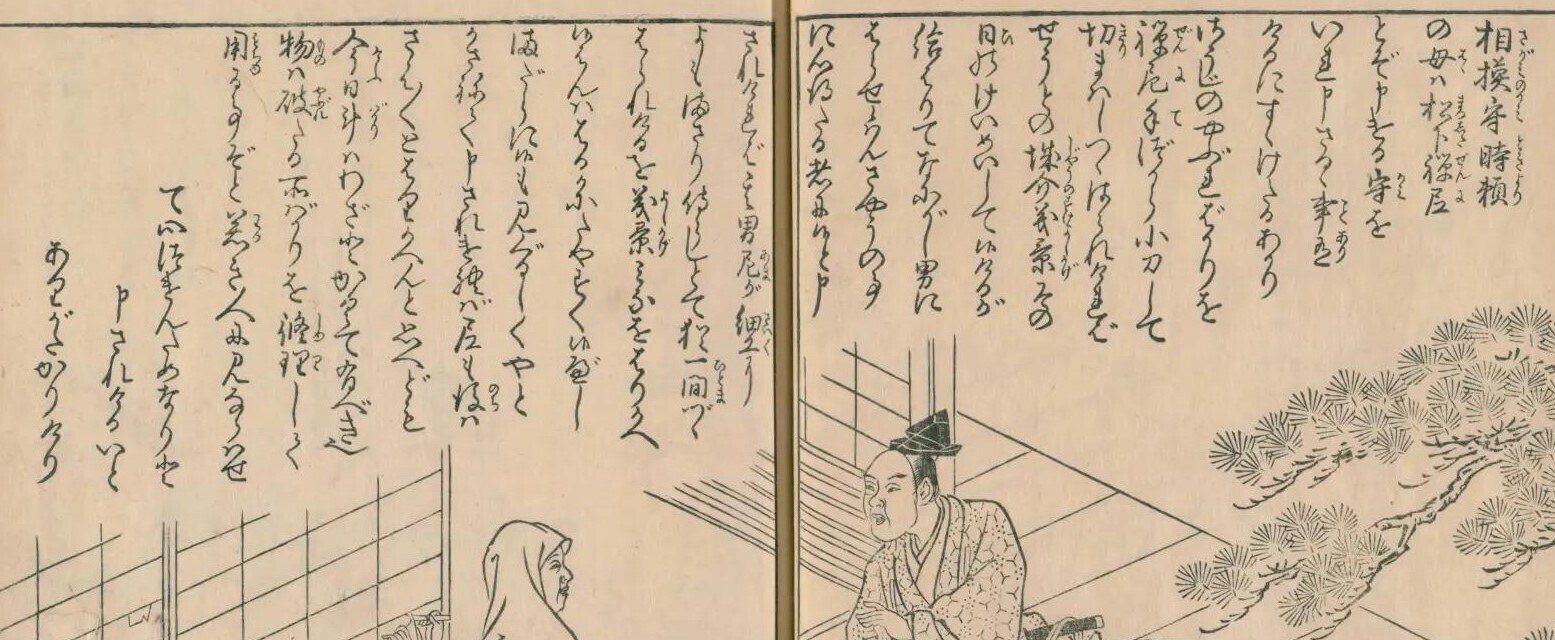 相模守時頼
の母ハ松下禅尼
とぞ申ける守を
いれ申さるゝ事有
けるにすゝけたるあかり
しやうじのやぶればかりを
禅尼手づから小刀して
切まハしつゝはられければ
せうとの城介義景その
日のけいめいして候けるが
給はりてなにがし男に
はらせ候ハんさやうの事
に心得たる者に候と申
されければ其男尼が細工に
よもまさり侍らじとて猶一間づゝ
はられけるを義景みなをはりかへ
候はんハはるかにたやすく候べし
まだらに候も見ぐるしくやと
かさねて申されければ尼も後ハ
さは〱とはりかへんと思へども
今日斗ハわざとかくて有べき也
物ハ破たる所ばかりを修理して
用る事ぞと若き人に見ならハせ
て心づけんためなりと
申されけるいと
ありがたかりけり